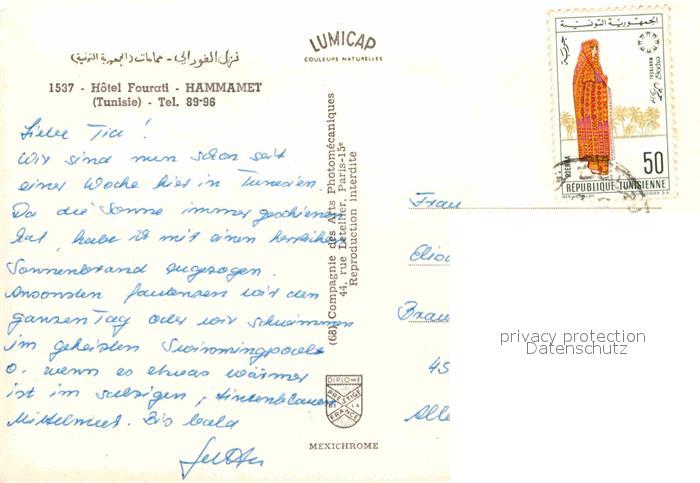 LUMICAP
COULEURS NATURELLES
نزل الفوراتي - حمامات (الجمهورية التونسية)
1537 - Hôtel Fourati - HAMMAMET
(Tunisie) - Tel. 89-96
Liebe
Wir sind nun schon seit
einer Woche hier in Tunesien.
Da die Sonne immer geschienen
hat, habe ich mir einen herrlichen
Sonnenbrand zugezogen.
Ansonsten faulenzen wir den
ganzen Tag oder wir schwimmen
im geheizten Swimmingpool
o. wenn es etwas wärmer
ist im salzigen, tintenblauen
Mittelmeer. Bis bald
(68) Compagnie des Arts Photomécaniques
44, rue Letellier, Paris-15e
Reproduction interdite
DIPLOME
PRESTIGE
DE LA
FRANCE
MEXICHROME
الجمهورية التونسية
expo67
MONTREAL
50
REPUBLIQUE TUNISIENNE
Frau
Brau
45
Alle
privacy protection
Datenschutz